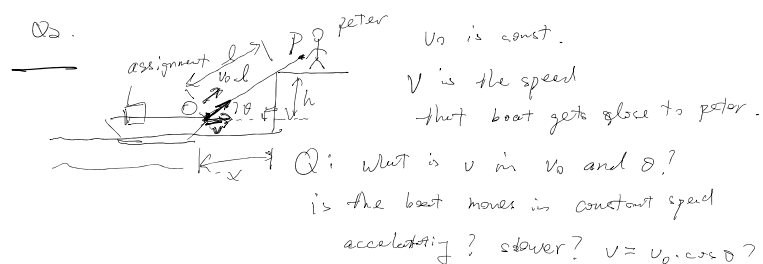 Q2.
peter
P
assignment
l
v₀
O
θ
h
x
v₀ is const.
V is the speed
that boat gets close to peter.
Q: what is v in v₀ and θ?
is the boat moves in constant speed
accelerating? slower? v = v₀·cosθ?